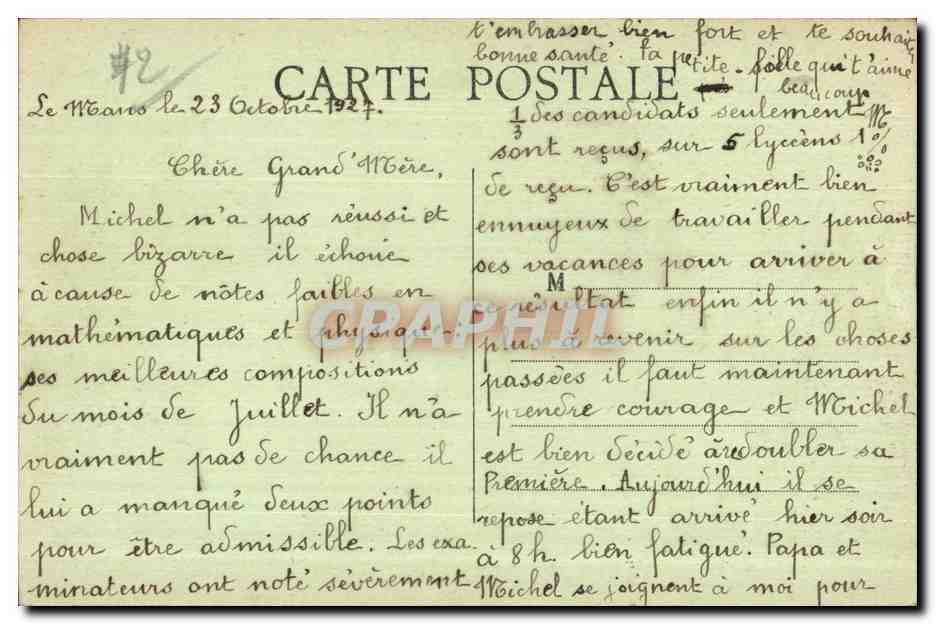 #2
CARTE POSTALE
Le Mans le 23 Octobre 1927.
Chère Grand'Mère,
Michel n'a pas réussi et
chose bizarre il échoue
à cause de nôtes faibles en
mathématiques et physique
ses meilleures compositions
du mois de Juillet. Il n'a
vraiment pas de chance il
lui a manqué deux points
pour être admissible. Les exa
minateurs ont noté sévèrement
1/3 des candidats seulement
sont reçus, sur 5 lycéens 1
de reçu. C'est vraiment bien
ennuyeux de travailler pendant
ses vacances pour arriver à
M
ce résultat enfin il n'y a
plus à revenir sur les choses
passées il faut maintenant
prendre courage et Michel
est bien décidé à redoubler sa
Première. Aujourd'hui il se
repose étant arrivé hier soir
à 8h. bien fatigué. Papa et
Michel se joignent à moi pour
t'embrasser bien fort et te souhaite
bonne santé. Ta petite-fille qui t'aime
beaucoup
M
%
CPAPHIL